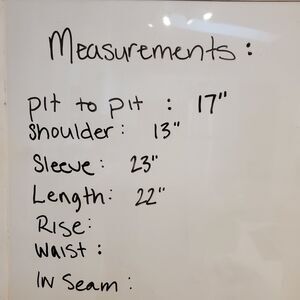 Measurements:
pit to pit : 17"
Shoulder: 13"
Sleeve: 23"
Length: 22"
Rise:
Waist :
In Seam :